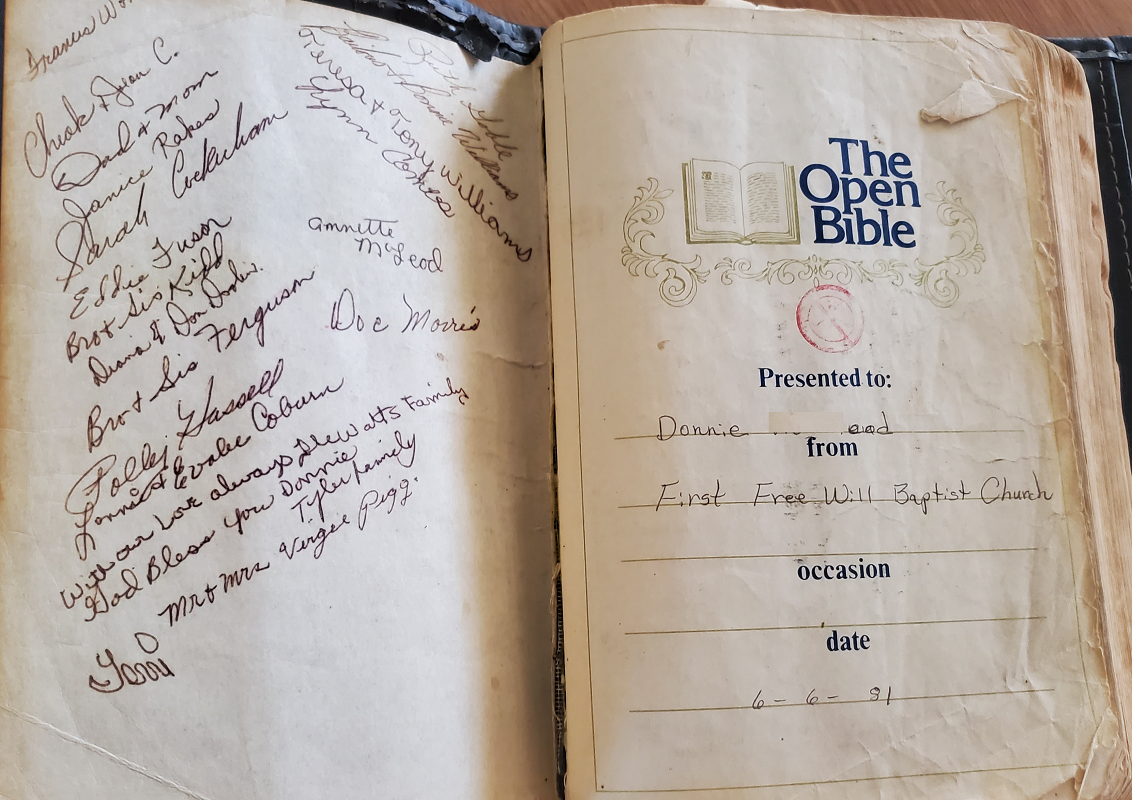 Cheak & Jean C.
Dad & Mom
Janice Rakes
Sarah Cockerham
Eddie Fuson
Bro & Sis Kidd
Bro & Sis Ferguson
Polley Hassell
Coburn
With our Love always Family
God Bless You Donnie
Tyler family
Mr & Mrs Virgee Pigg.
Terri
Ruth
Williams
Teresa & Tony Williams
Lynn Combs
Annette
McLeod
Doc Morris
The
Open
Bible
Presented to:
Donnie ead
from
First Free Will Baptist Church
occasion
date
6 - 6 - 81